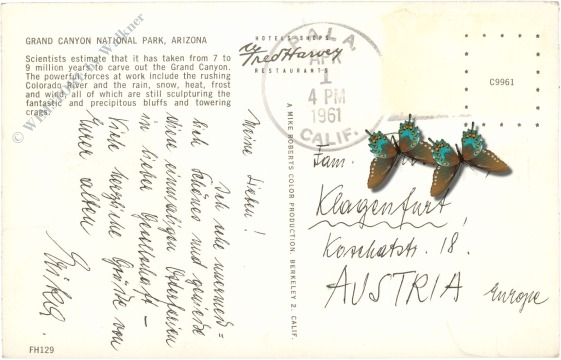 GRAND CANYON NATIONAL PARK, ARIZONA
Scientists estimate that it has taken from 7 to
9 million years to carve out the Grand Canyon.
The powerful forces at work include the rushing
Colorado River and the rain, snow, heat, frost
and wind, all of which are still sculpturing the
fantastic and precipitous bluffs and towering
crags.
Meine Lieben!
Ich sehe unermeß=
lich Schönes und genieße
diese einmaligen Osterferien
in lieber Gesellschaft –
Viele herzliche Grüße von
Eurer alten
HOTELS · SHOPS
Fred Harvey
RESTAURANTS
A MIKE ROBERTS COLOR PRODUCTION. BERKELEY 2. CALIF.
APR
1
4 PM
1961
CALIF.
C9961
Fam.
Klagenfurt,
Koschatstr. 18.
AUSTRIA Europe
FH129
© Wilkner